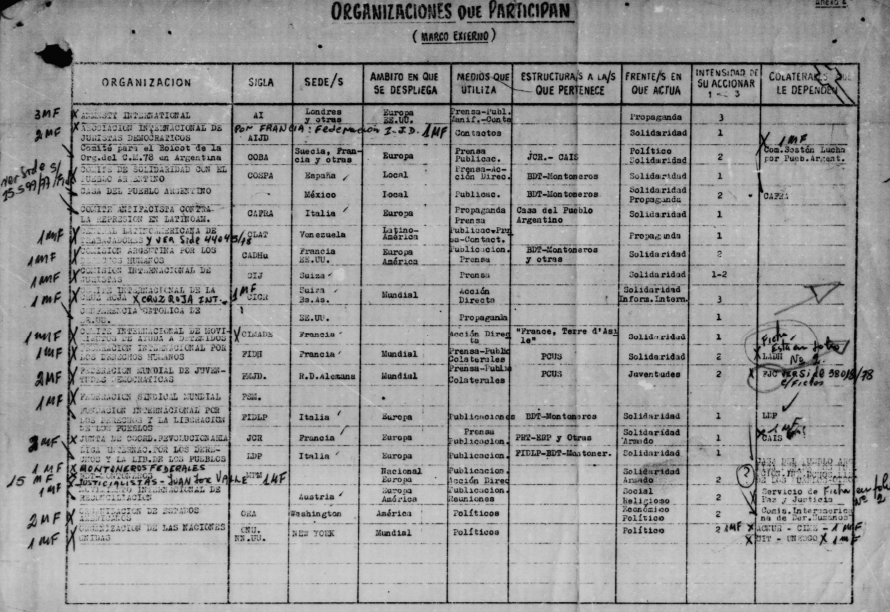 anexo 2
ORGANIZACIONES QUE PARTICIPAN
(MARCO EXTERNO)
ORGANIZACION SIGLA SEDE/S AMBITO EN QUE SE DESPLIEGA MEDIOS QUE UTILIZA ESTRUCTURA/S A LA/S QUE PERTENECE FRENTE/S EN QUE ACTUA INTENSIDAD DE SU ACCIONAR 1 - 3 COLATERALES QUE LE DEPENDEN
3MF X AMNESTY INTERNATIONAL AI Londres y otras Europa EE.UU. Prensa-Publ. Manif.-Conta Propaganda 3
2MF X ASOCIACION INTERNACIONAL DE JURISTAS DEMOCRATICOS AIJD POR FRANCIA: Federación I.J.D. 1MF Contactos Solidaridad 1
Comité para el Boicot de la Org.del C.M.78 en Argentina COBA Suecia, Francia y otras Europa Prensa Publicac. JCR.- CAIS Político Solidaridad 2 X 1MF Com.Sostén Lucha por Pueb.Argent.
COMITE DE SOLIDARIDAD CON EL PUEBLO ARGENTINO COSPA España Local Prensa-Acción Direc. BDT-Montoneros Solidaridad 1
CASA DEL PUEBLO ARGENTINO México Local Publicac. BDT-Montoneros Solidaridad Propaganda 2 CAFRA
COMITE ANTIFACISTA CONTRA LA REPRESION EN LATINOAM. CAFRA Italia Europa Propaganda Prensa Casa del Pueblo Argentino Solidaridad 1
1MF X CENTRAL LATINOAMERICANA DE TRABAJADORES y ver Side CLAT Venezuela Latino-América Propaganda 1
1MF X COMISION ARGENTINA POR LOS DERECHOS HUMANOS CADHu Francia EE.UU. Europa América Publicacion. Prensa BDT-Montoneros y otras Solidaridad 2
1MF X COMISION INTERNACIONAL DE JURISTAS CIJ Suiza Prensa Solidaridad 1-2
1MF X COMITE INTERNACIONAL DE LA CRUZ ROJA X CRUZ ROJA INT. 1MF CICR Suiza Bs.As. Mundial Acción Directa Solidaridad Inform.Intern. 3
CONFERENCIA CATOLICA DE EE.UU. EE.UU. Propaganda 1
1MF X COMITE INTERNACIONAL DE MOVIMIENTOS DE AYUDA A DETENIDOS X CIMADE Francia Acción Direc ta "France, Terre d'Asile" Solidaridad 1
1MF X FEDERACION INTERNACIONAL POR LOS DERECHOS HUMANOS FIDH Francia Mundial Prensa-Public Colaterales PCUS Solidaridad 2 X LADH
2MF X FEDERACION MUNDIAL DE JUVENTUDES DEMOCRATICAS FMJD. R.D.Alemana Mundial Prensa-Public Colaterales PCUS Juventudes 2 X FJC
1MF X FEDERACION SINDICAL MUNDIAL FSM.
FUNDACION INTERNACIONAL POR LOS DERECHOS Y LA LIBERACION DE LOS PUEBLOS FIDLP Italia Europa Publicaciones BDT-Montoneros Solidaridad 1 LDP
2MF X JUNTA DE COORD.REVOLUCIONARIA JCR Francia Europa Prensa Publicacion. PRT-ERP y Otras Solidaridad Armado 1 X 1MF CAIS
LIGA INTERNAC.POR LOS DERECHOS Y LA LIB.DE LOS PUEBLOS LDP Italia Europa Publicacion. FIDLP-BDT-Montoner. Solidaridad 1
1MF X MONTONEROS FEDERALES
15 MF X JUSTICIALISTAS - JUAN JOSE VALLE 1MF MPM Nacional Europa Publicacion Acción Direc Solidaridad Armado 2 (?)
1MF MOVIMIENTO INTERNACIONAL DE RECONCILIACION Austria Europa América Publicacion. Reuniones Social Religioso 2 X Servicio de Paz y Justicia
2MF X ORGANIZACION DE ESTADOS AMERICANOS OEA Washington América Políticos Económico Político 2 Comis.Interamericana de Der.Humanos
1MF X ORGANIZACION DE LAS NACIONES UNIDAS ONU. NN.UU. NEW YORK Mundial Políticos Político 2 1MF X ACNUR - CIME - 1MF
X OIT - UNESCO X 1MF